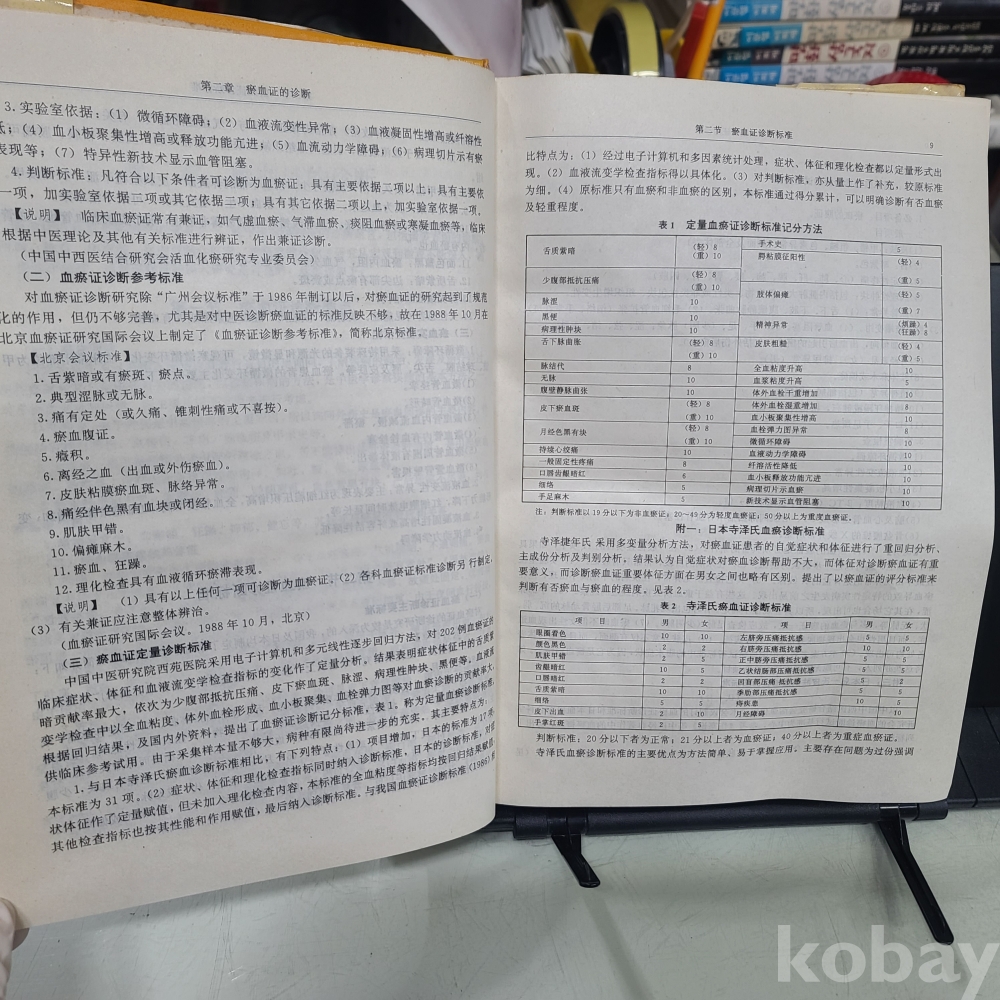 第二章 瘀血证的诊断
3.实验室依据：(1) 微循环障碍；(2) 血液流变性异常；(3) 血液凝固性增高或纤溶性
低；(4) 血小板聚集性增高或释放功能亢进；(5) 血流动力学障碍；(6) 病理切片示有瘀
表现等；(7) 特异性新技术显示血管阻塞。
4.判断标准：凡符合以下条件者可诊断为血瘀证：具有主要依据二项以上；具有主要依
一项，加实验室依据二项或其它依据二项；具有其它依据二项以上，加实验室依据一项。
【说明】 临床血瘀证常有兼证，如气虚血瘀、气滞血瘀、痰阻血瘀或寒凝血瘀等，临床
根据中医理论及其他有关标准进行辨证，作出兼证诊断。
（中国中西医结合研究会活血化瘀研究专业委员会）
（二）血瘀证诊断参考标准
对血瘀证诊断研究除“广州会议标准”于 1986 年制订以后，对瘀血证的研究起到了规范
化的作用，但仍不够完善，尤其是对中医诊断瘀血证的标准反映不够，故在 1988 年 10 月在
北京血瘀证研究国际会议上制定了《血瘀证诊断参考标准》，简称北京标准。
【北京会议标准】
1.舌紫暗或有瘀斑、瘀点。
2.典型涩脉或无脉。
3.痛有定处（或久痛、锥刺性痛或不喜按）。
4.瘀血腹证。
5.癥积。
6.离经之血（出血或外伤瘀血）。
7.皮肤粘膜瘀血斑、脉络异常。
8.痛经伴色黑有血块或闭经。
9.肌肤甲错。
10.偏瘫麻木。
11.瘀血、狂躁。
12.理化检查具有血液循环瘀滞表现。
【说明】 (1) 具有以上任何一项可诊断为血瘀证、(2) 各科血瘀证标准诊断另 行制定，
(3) 有关兼证应注意整体辨治。
（血瘀证研究国际会议。1988 年 10 月，北京）
（三）瘀血证定量诊断标准
中国中医研究院西苑医院采用电子计算机和多元线性逐步回归方法，对 202 例血瘀证的
临床症状、体征和血液流变学检查指标的变化作了定量分析。结果表明症状体征中的舌质紫
暗贡献率最大，依次为少腹部抵抗压痛、皮下瘀血斑、脉涩、病理性肿块、黑便等，血液流
变学检查中以全血粘度、体外血栓形成、血小板聚集、血栓弹力图等对血瘀诊断的贡献率大。
根据回归结果，及国内外资料，提出了血瘀证诊断记分标准，表1。称为定量血瘀诊断标准，
供临床参考试用。由于采集样本量不够大，病种有限尚待进一步的充实，其主要特点为：
1.与日本寺泽氏瘀血诊断标准相比，有下列特点：(1) 项目增加，日本的标准为 17 项，
本标准为 31 项。(2) 症状、体征和理化检查指标同时纳入诊断标准，日本的诊断标准，对症
状体征作了定量赋值，但未加入理化检查内容，本标准的全血粘度等指标均按回归结果赋值，
其他检查指标也按其性能和作用赋值，最后纳入诊断标准。与我国血瘀证诊断标准 (1986)
第二节 瘀血证诊断标准 9
比特点为：(1) 经过电子计算机和多因素统计处理，症状、体征和理化检查都以定量形式出
现。(2) 血液流变学检查指标得以具体化。(3) 对判断标准，亦从量上作了补充，较原标准
为细。(4) 原标准只有血瘀和非血瘀的区别，本标准通过得分累计，可以明确诊断有否血瘀
及轻重程度。
表 1 定量血瘀证诊断标准记分方法
舌质紫暗 （轻）8 （重）10 手术史 5
腭粘膜征阳性 （轻）4 （重）5
少腹部抵抗压痛 （轻）8 （重）10 肢体偏瘫 （轻）5 （重）7
脉涩 10
黑便 10 精神异常 （烦躁）4 （狂躁）8
病理性肿块 10
舌下脉曲胀 （轻）8 （重）10 皮肤粗糙 （轻）4 （重）5
脉结代 8 全血粘度升高 10
无脉 10 血浆粘度升高 5
腹壁静脉曲张 10 体外血栓干重增加 10
皮下瘀血斑 （轻）8 （重）10 体外血栓湿重增加 8
血小板聚集性增高 10
月经色黑有块 （轻）8 （重）10 血栓弹力图异常 8
微循环障碍 10
持续心绞痛 10 血液动力学障碍 10
一般固定性疼痛 8 纤溶活性降低 10
口唇齿龈暗红 6 血小板释放功能亢进 10
细络 5 病理切片示血瘀 10
手足麻木 5 新技术显示血管阻塞 10
注：判断标准以 19 分以下为非血瘀证；20～49 分为轻度血瘀证；50分以上为重度血瘀证。
附一：日本寺泽氏血瘀诊断标准
寺泽捷年氏 采用多变量分析方法，对瘀血证患者的自觉症状和体征进行了重回归分析、
主成份分析及判别分析，结果认为自觉症状对瘀血诊断帮助不大，而体征对诊断瘀血证有重
要意义，而诊断瘀血证重要体征方面在男女之间也略有区别。提出了以瘀血证的评分标准来
判断有否瘀血与瘀血的程度。见表 2。
表 2 寺泽氏瘀血证诊断标准
项 目 男 女 项 目 男 女
眼圈着色 10 10 左脐旁压痛抵抗感 5 5
颜色黑色 2 2 右脐旁压痛抵抗感 10 10
肌肤甲错 2 5 正中脐旁压痛抵抗感 5 5
齿龈暗红 10 5 乙状结肠部压痛抵抗感 5 5
口唇暗红 2 2 回盲部压痛 抵抗感 5 2
舌质紫暗 10 10 季肋部压痛 抵抗感 5 5
细络 5 5 痔疾患 10 5
皮下出血 2 10 月经障碍 10
手掌红斑 2 5
判断标准：20 分以下者为正常；21 分以上者为血瘀证；40 分以上者为重症血瘀证。
寺泽氏血瘀诊断标准的主要优点为方法简单、易于掌握应用。主要存在问题为过份强调
kobay